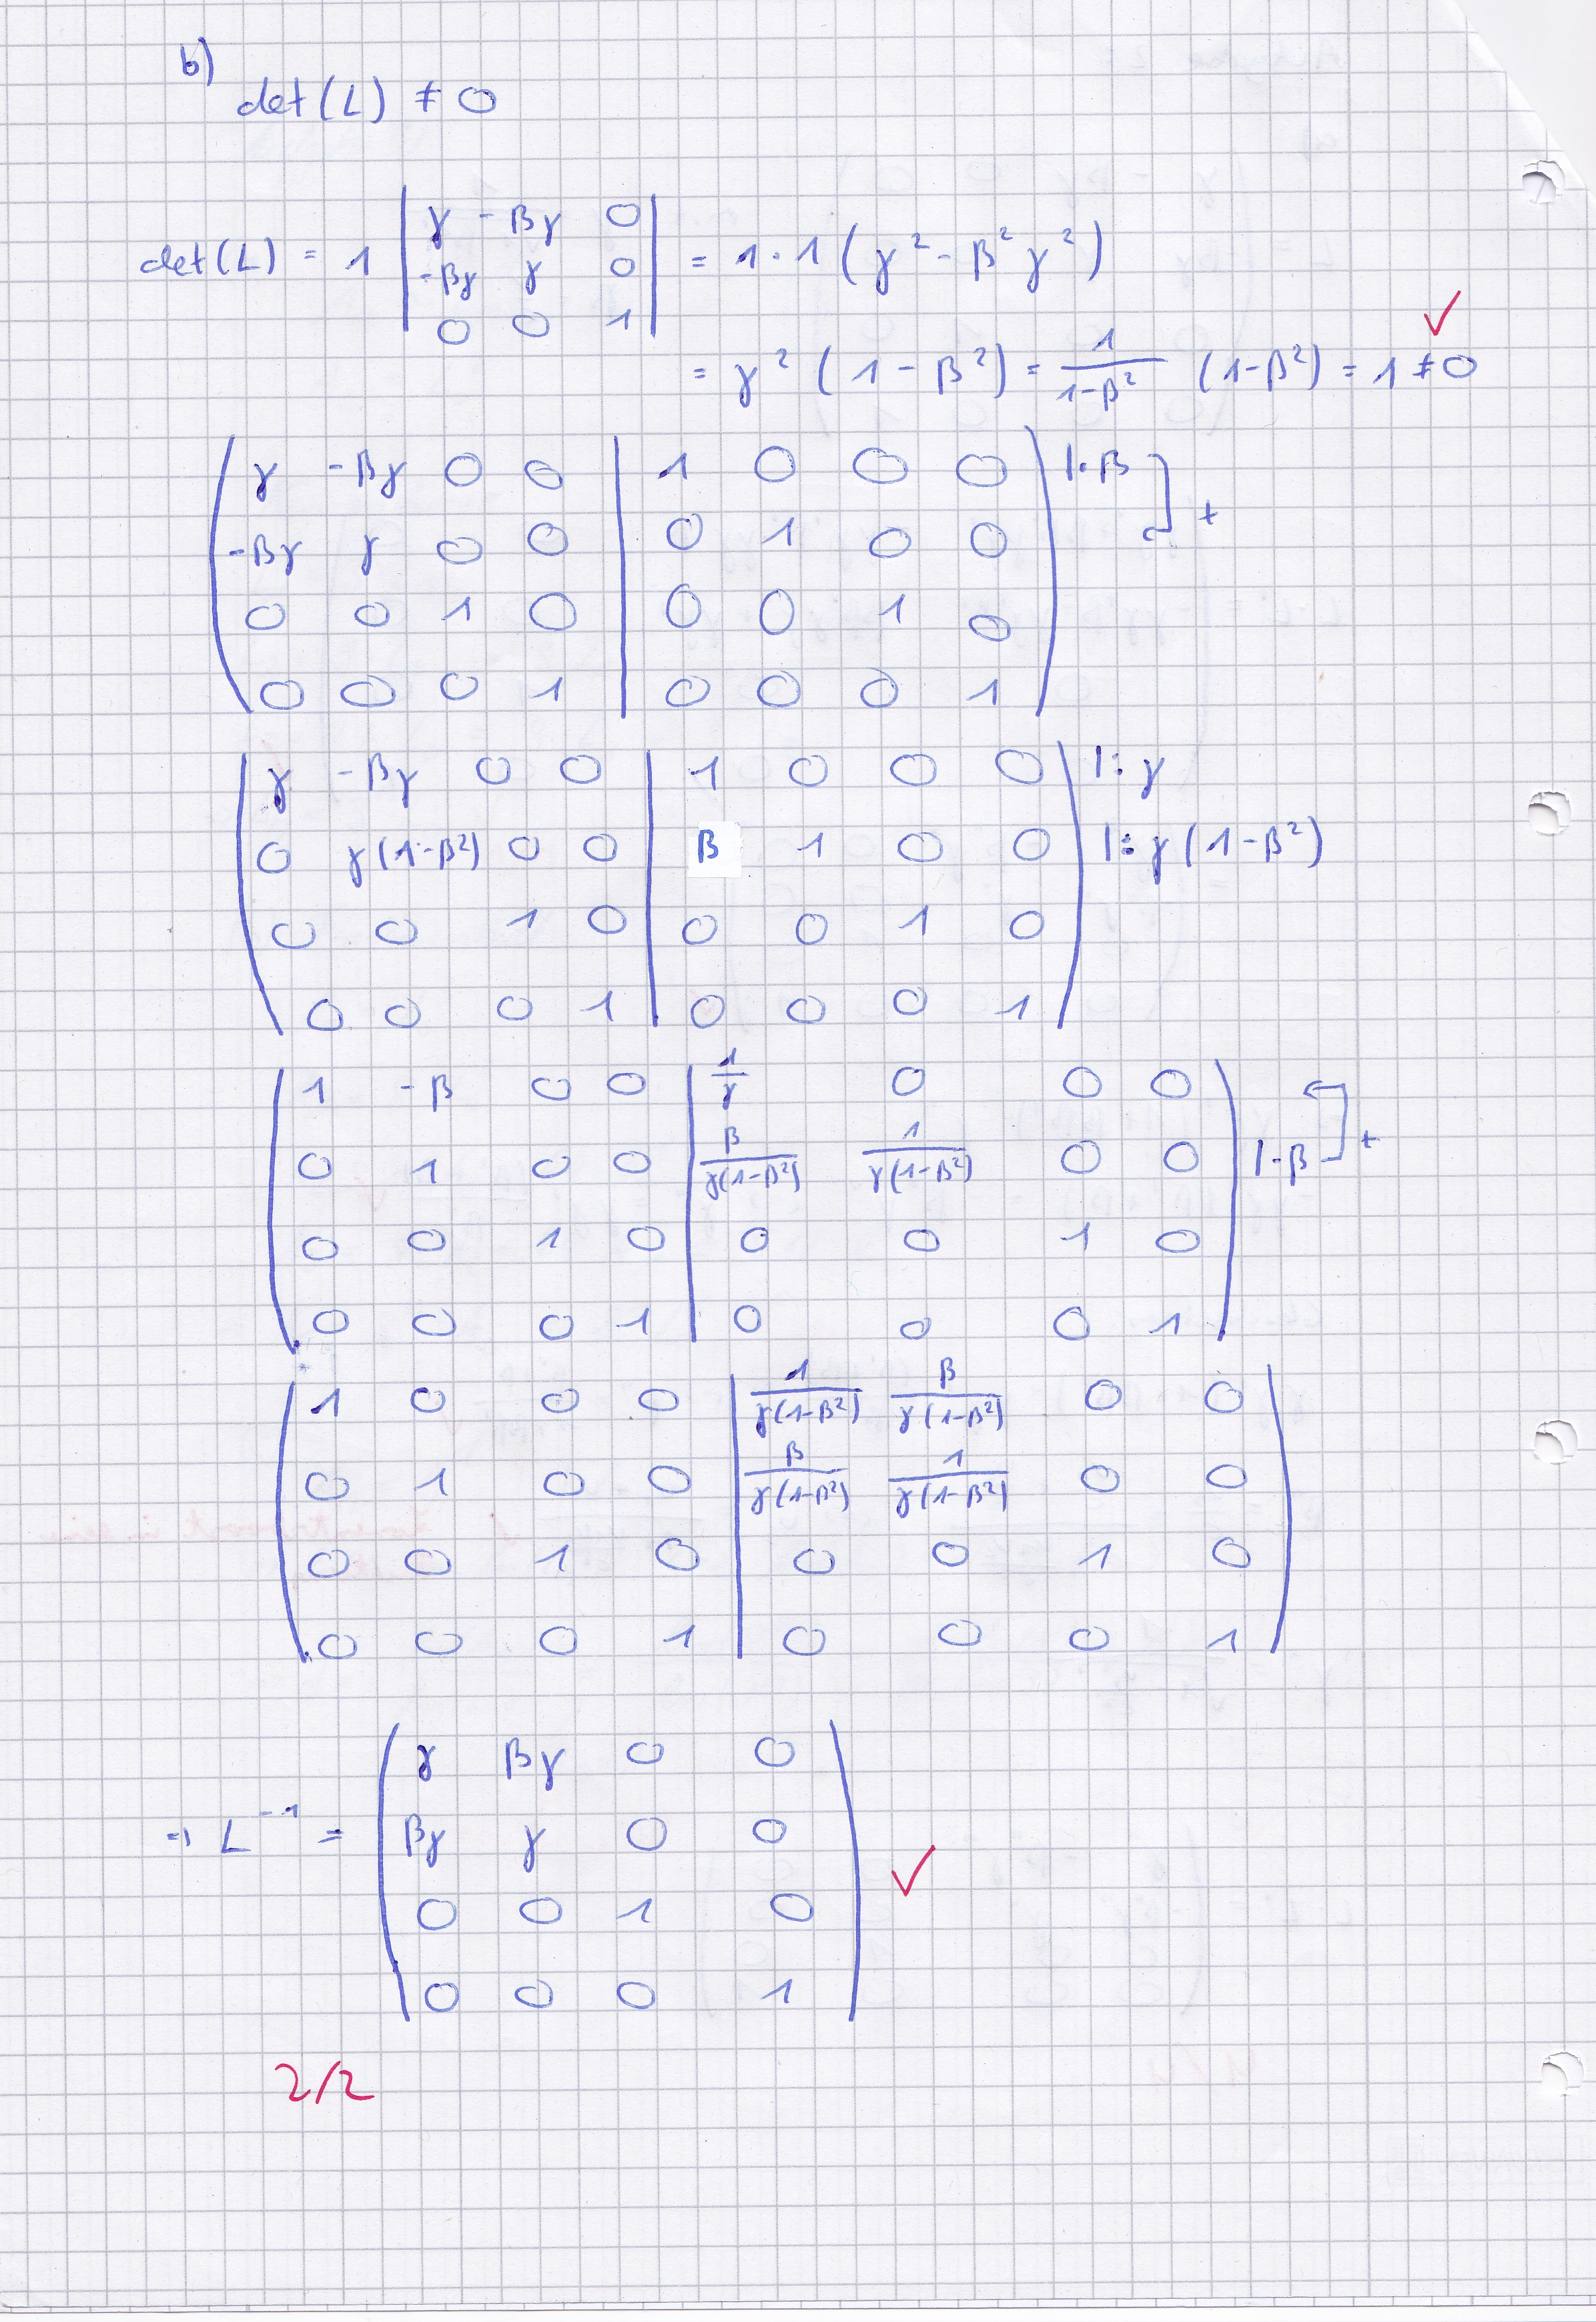 b)
det(L) ≠ 0
det(L) = 1 | γ -βγ 0 |
| -βγ γ 0 | = 1 · 1 (γ² - β²γ²)
| 0 0 1 |
✓
= γ² (1 - β²) = 1/(1-β²) (1-β²) = 1 ≠ 0
( γ -βγ 0 0 | 1 0 0 0 ) |·β
( -βγ γ 0 0 | 0 1 0 0 ) +
( 0 0 1 0 | 0 0 1 0 )
( 0 0 0 1 | 0 0 0 1 )
( γ -βγ 0 0 | 1 0 0 0 ) |: γ
( 0 γ(1-β²) 0 0 | β 1 0 0 ) |: γ(1-β²)
( 0 0 1 0 | 0 0 1 0 )
( 0 0 0 1 | 0 0 0 1 )
( 1 -β 0 0 | 1/γ 0 0 0 )
( 0 1 0 0 | β/(γ(1-β²)) 1/(γ(1-β²)) 0 0 ) |·β +
( 0 0 1 0 | 0 0 1 0 )
( 0 0 0 1 | 0 0 0 1 )
( 1 0 0 0 | 1/(γ(1-β²)) β/(γ(1-β²)) 0 0 )
( 0 1 0 0 | β/(γ(1-β²)) 1/(γ(1-β²)) 0 0 )
( 0 0 1 0 | 0 0 1 0 )
( 0 0 0 1 | 0 0 0 1 )
( γ βγ 0 0 )
⇒ L⁻¹ = ( βγ γ 0 0 ) ✓
( 0 0 1 0 )
( 0 0 0 1 )
2/2